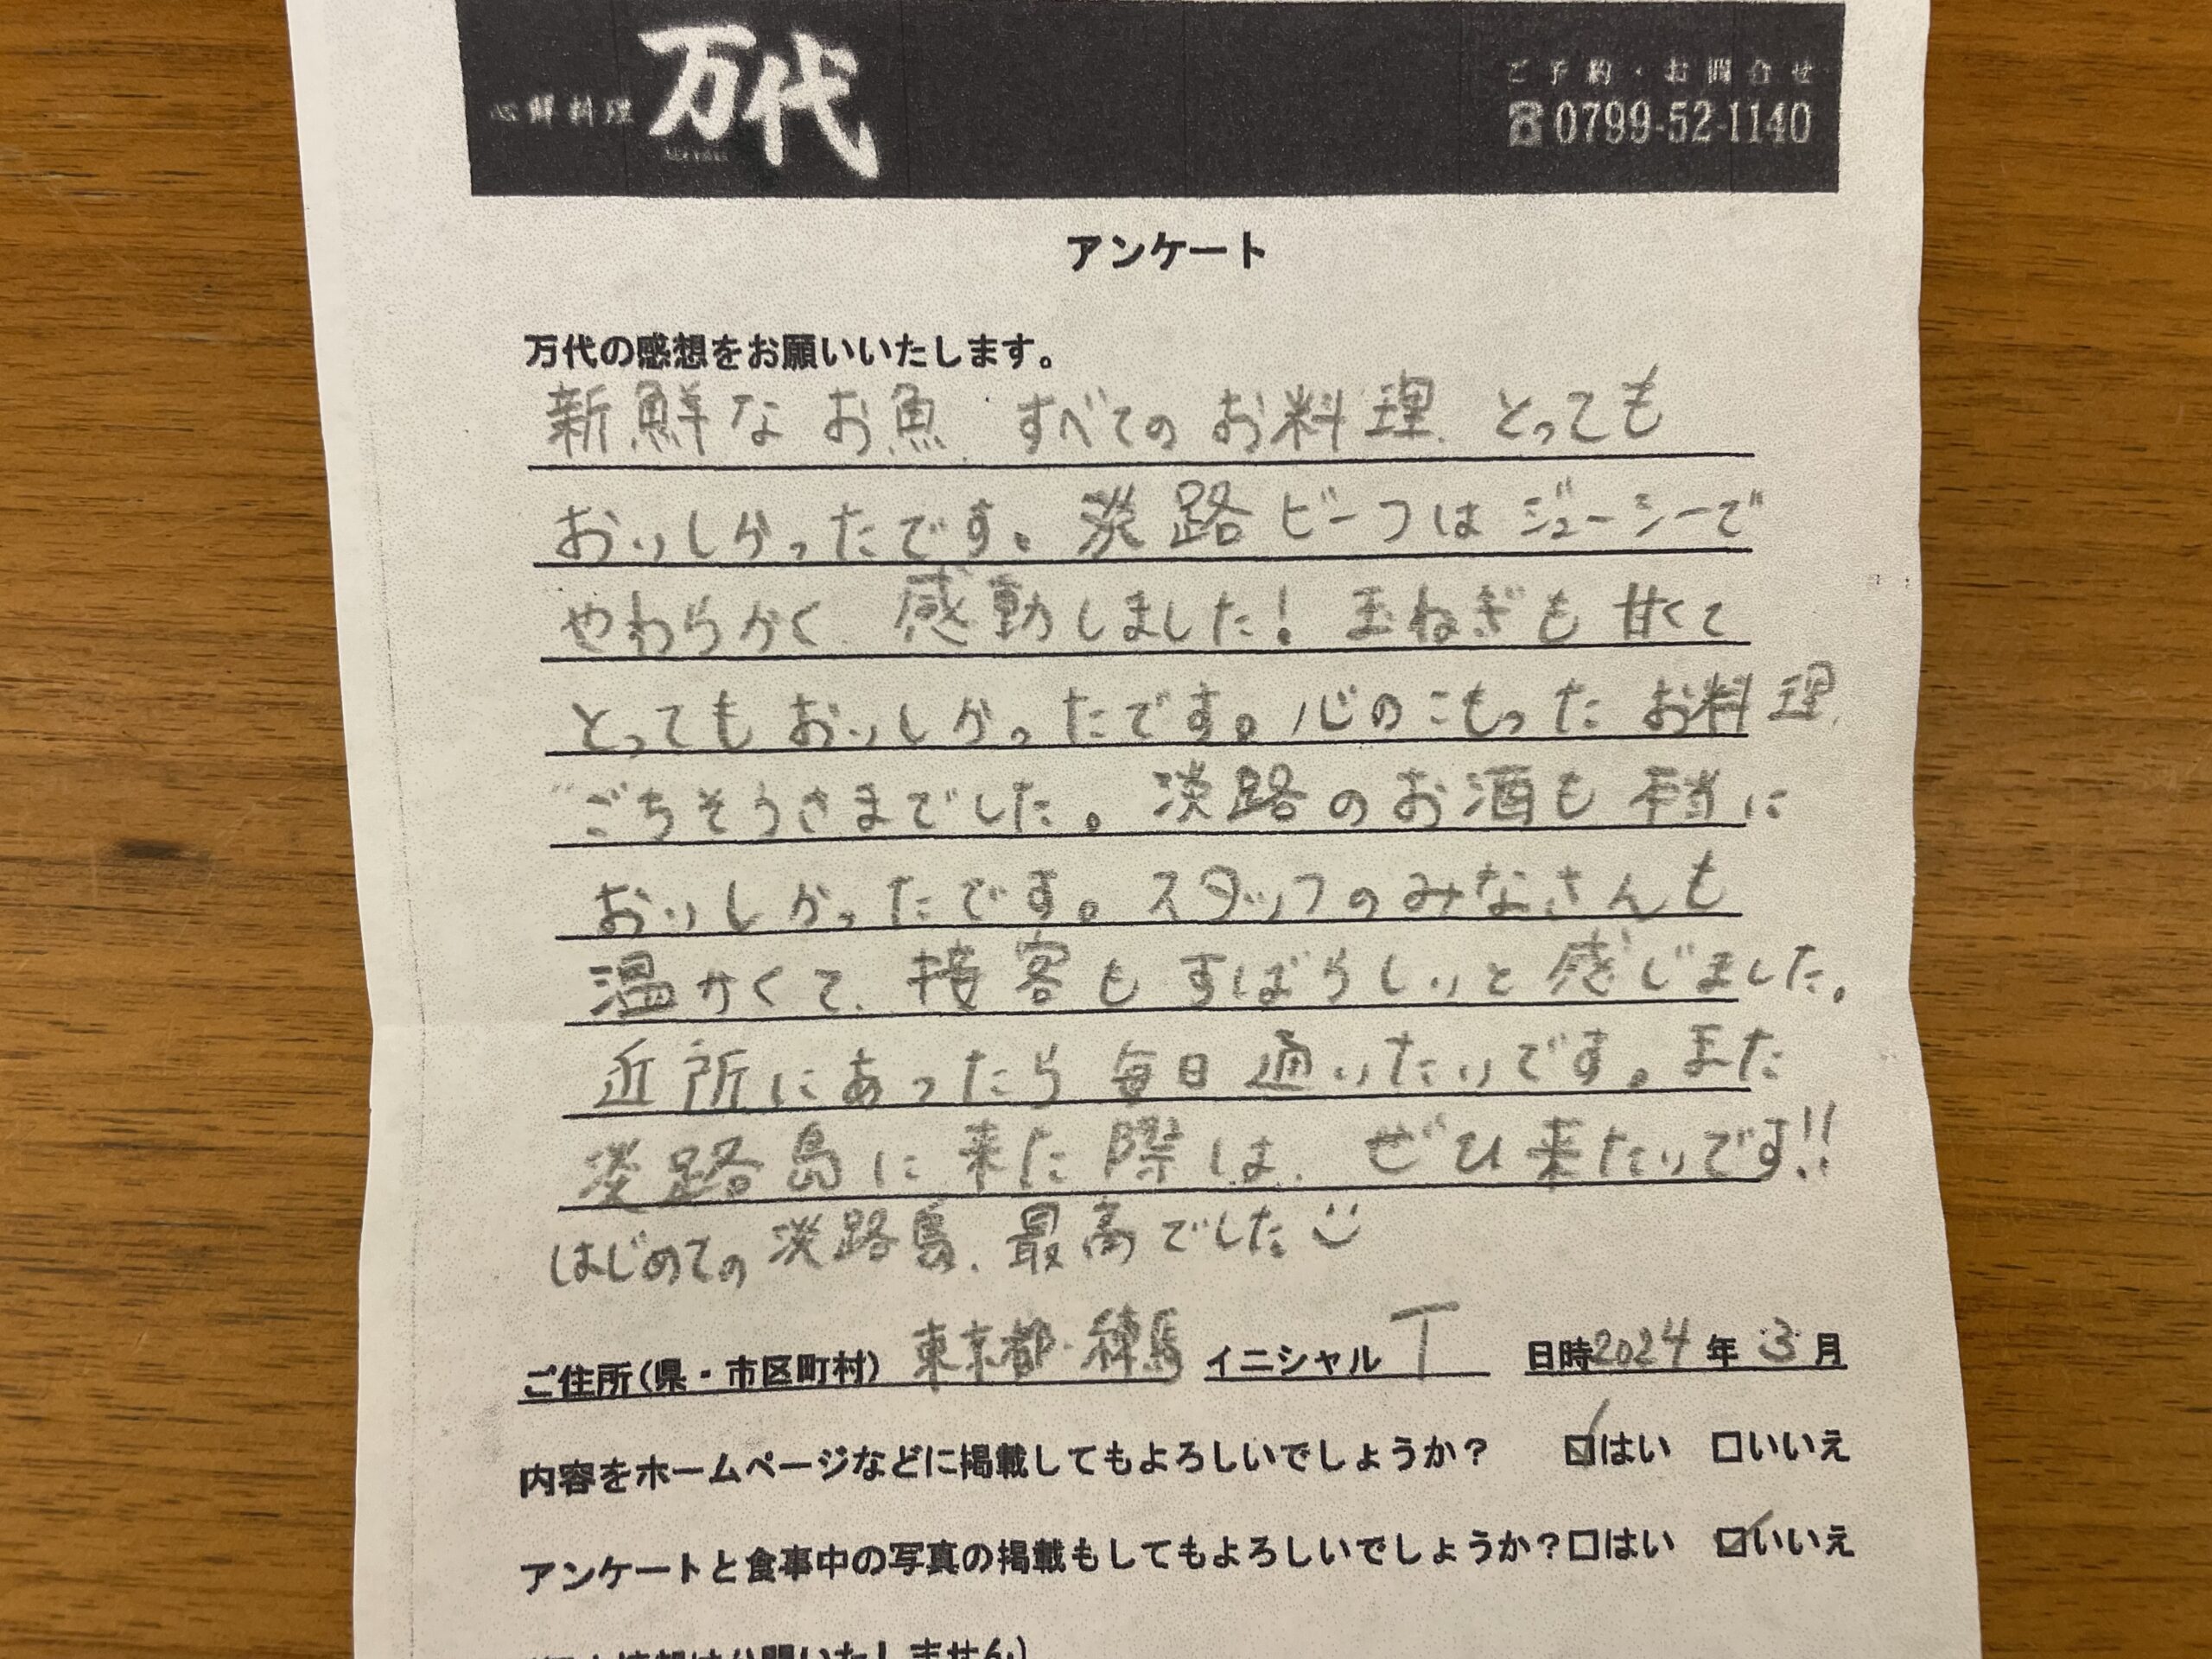 心鮮料理 万代
ご予約・お問合せ
☎0799-52-1140
アンケート
万代の感想をお願いいたします。
新鮮なお魚、すべてのお料理、とっても
おいしかったです。淡路ビーフはジューシーで
やわらかく、感動しました!玉ねぎも甘くて
とってもおいしかったです。心のこもったお料理、
ごちそうさまでした。淡路のお酒も本当に
おいしかったです。スタッフのみなさんも
温かくて、接客もすばらしいと感じました。
近所にあったら毎日通いたいです。また
淡路島に来た際は、ぜひ来たいです!!
はじめての淡路島、最高でした
ご住所(県・市区町村) 東京都・練馬 イニシャル T 日時2024年3月
内容をホームページなどに掲載してもよろしいでしょうか? ☑はい □いいえ
アンケートと食事中の写真の掲載もしてもよろしいでしょうか?□はい ☑いいえ